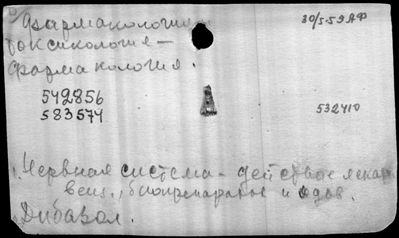 Фармакология
токсикология —
фармакология.
30/5-59 АФ
542856
583574
532410
Нервная система - действие лекар.
вещ., биопрепаратов и ядов.
Дибазол.